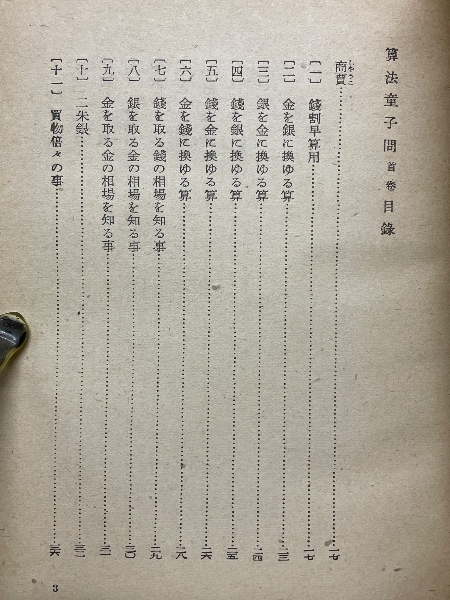 算法童子問 首卷 目錄
商賈……一七
〔一〕 錢割早算用……一七
〔二〕 金を銀に換ゆる算……二三
〔三〕 銀を金に換ゆる算……二四
〔四〕 錢を銀に換ゆる算……二五
〔五〕 錢を金に換ゆる算……二六
〔六〕 金を錢に換ゆる算……二八
〔七〕 錢を取る錢の相場を知る事……二九
〔八〕 銀を取る金の相場を知る事……三〇
〔九〕 金を取る金の相場を知る事……三一
〔十〕 二朱銀……三二
〔十一〕 買物倍々の事……三六
3